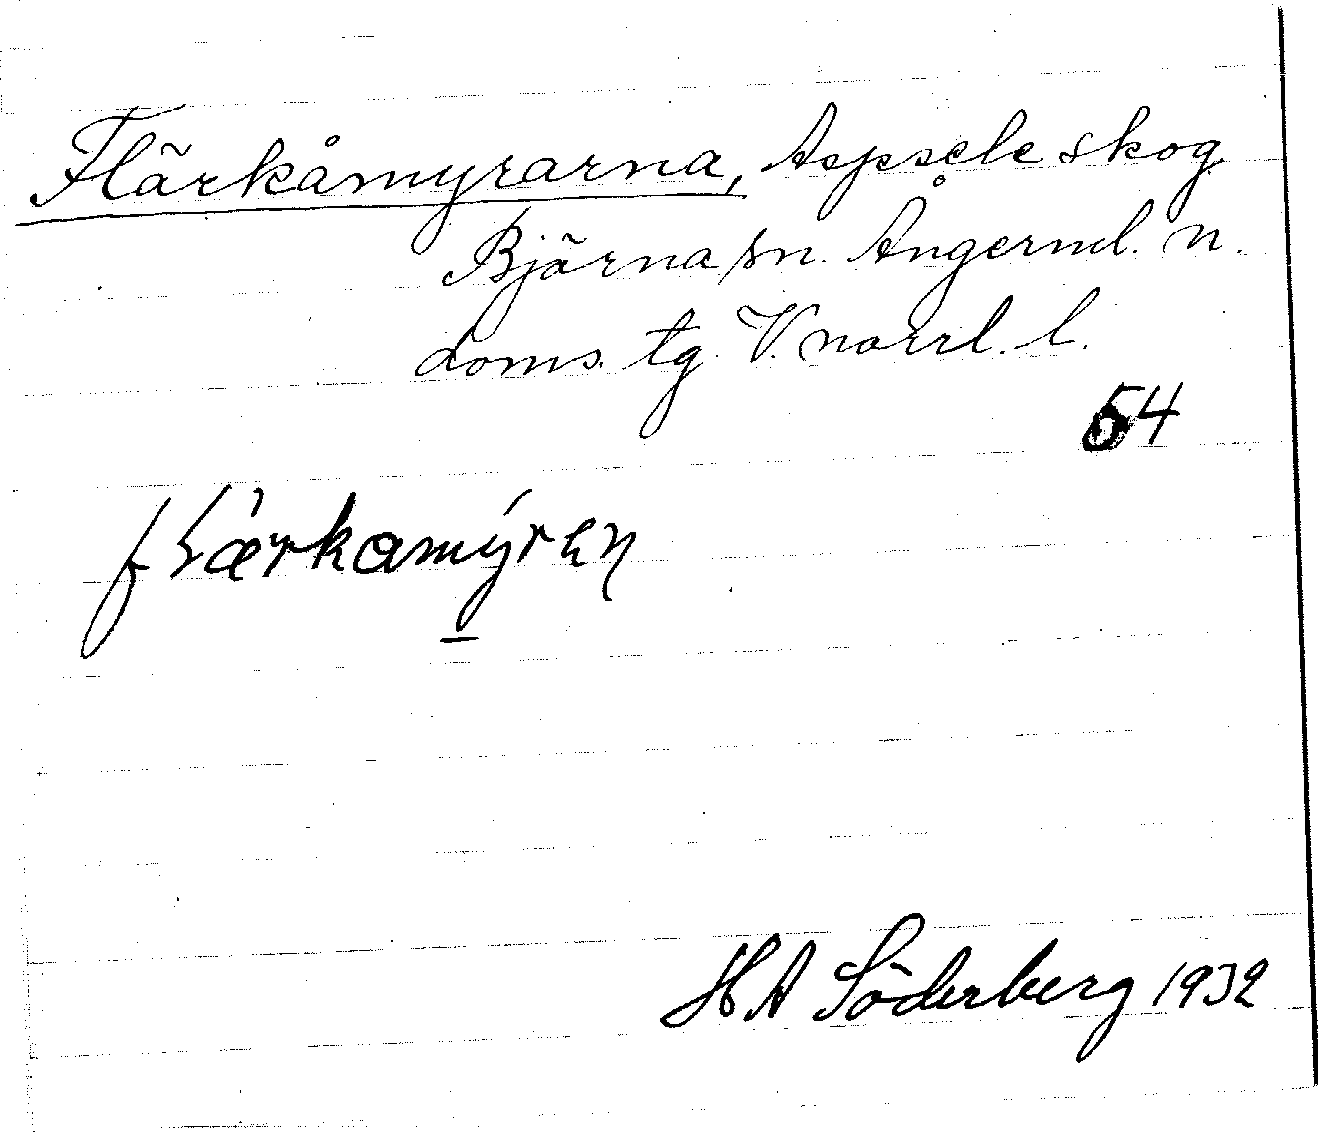 Flärkåmyrarna, Aspsele skog
Björna sn. Ångerml. n.
doms. tg. V. norrl. l.
54
flàrkamýren
HA Söderberg 1932